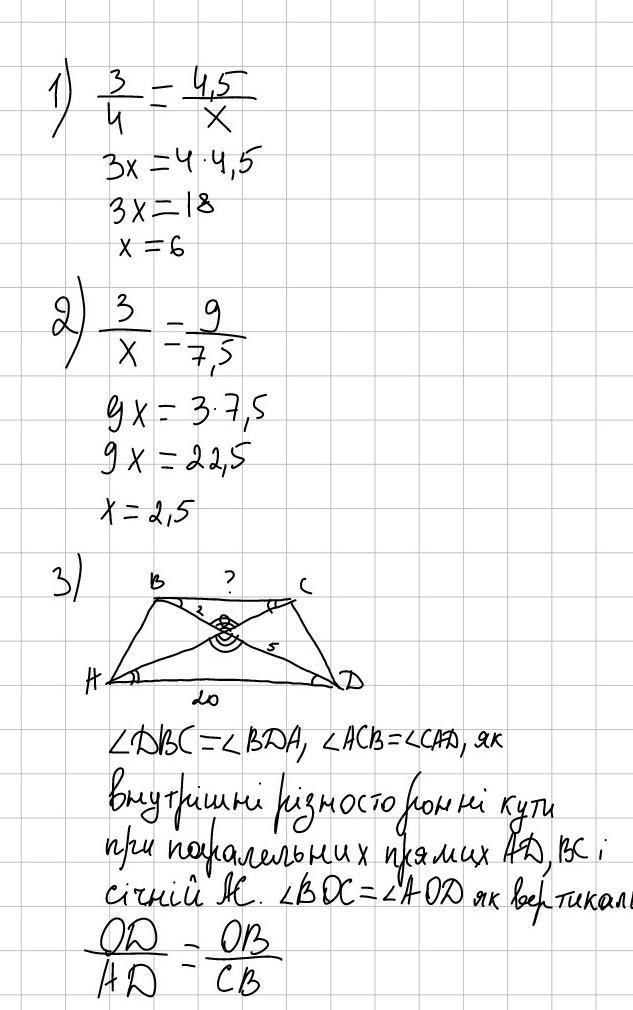 1) 3/4 = 4,5/x
3x = 4·4,5
3x = 18
x = 6
2) 3/x = 9/7,5
9x = 3·7,5
9x = 22,5
x = 2,5
3)
B ? C
2
5
A D
20
∠DBC = ∠BDA, ∠ACB = ∠CAD, як
внутрішні різносторонні кути
при паралельних прямих AD, BC і
січній AC. ∠BOC = ∠AOD як вертикаль
OD/AD = OB/CB